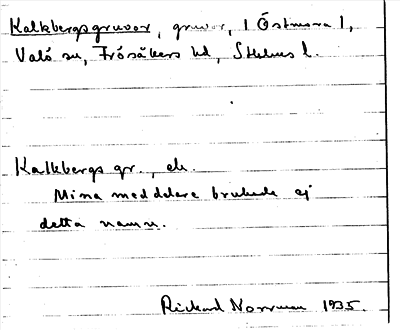 Kalkbergsgruvor, gruvor, i Östmora 1,
Valö sn, Frösåkers hd, Sthlms l.
Kalkbergs gr., ek.
Mina meddelare brukade ej
detta namn.
Rickard Norrman 1935.